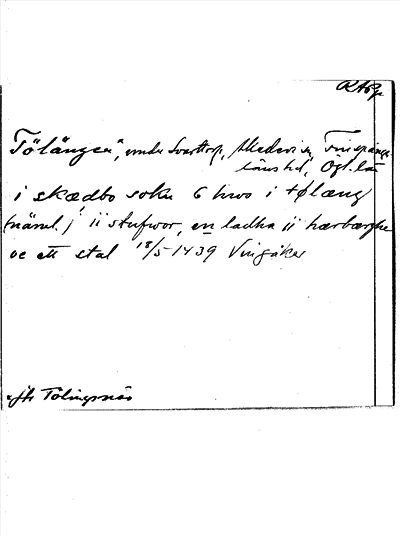 RApg
"Tölängen", under Svarttorp, Mederi sn, Finspånga
läns hd, Ögl. län
i skædbo sokn 6 hws i tølæng
(näml.) ii stufwor, en ladha ii hærbærghe
oc ett stal 18/5-1439 Vingåker
jfr Tolingsnäs